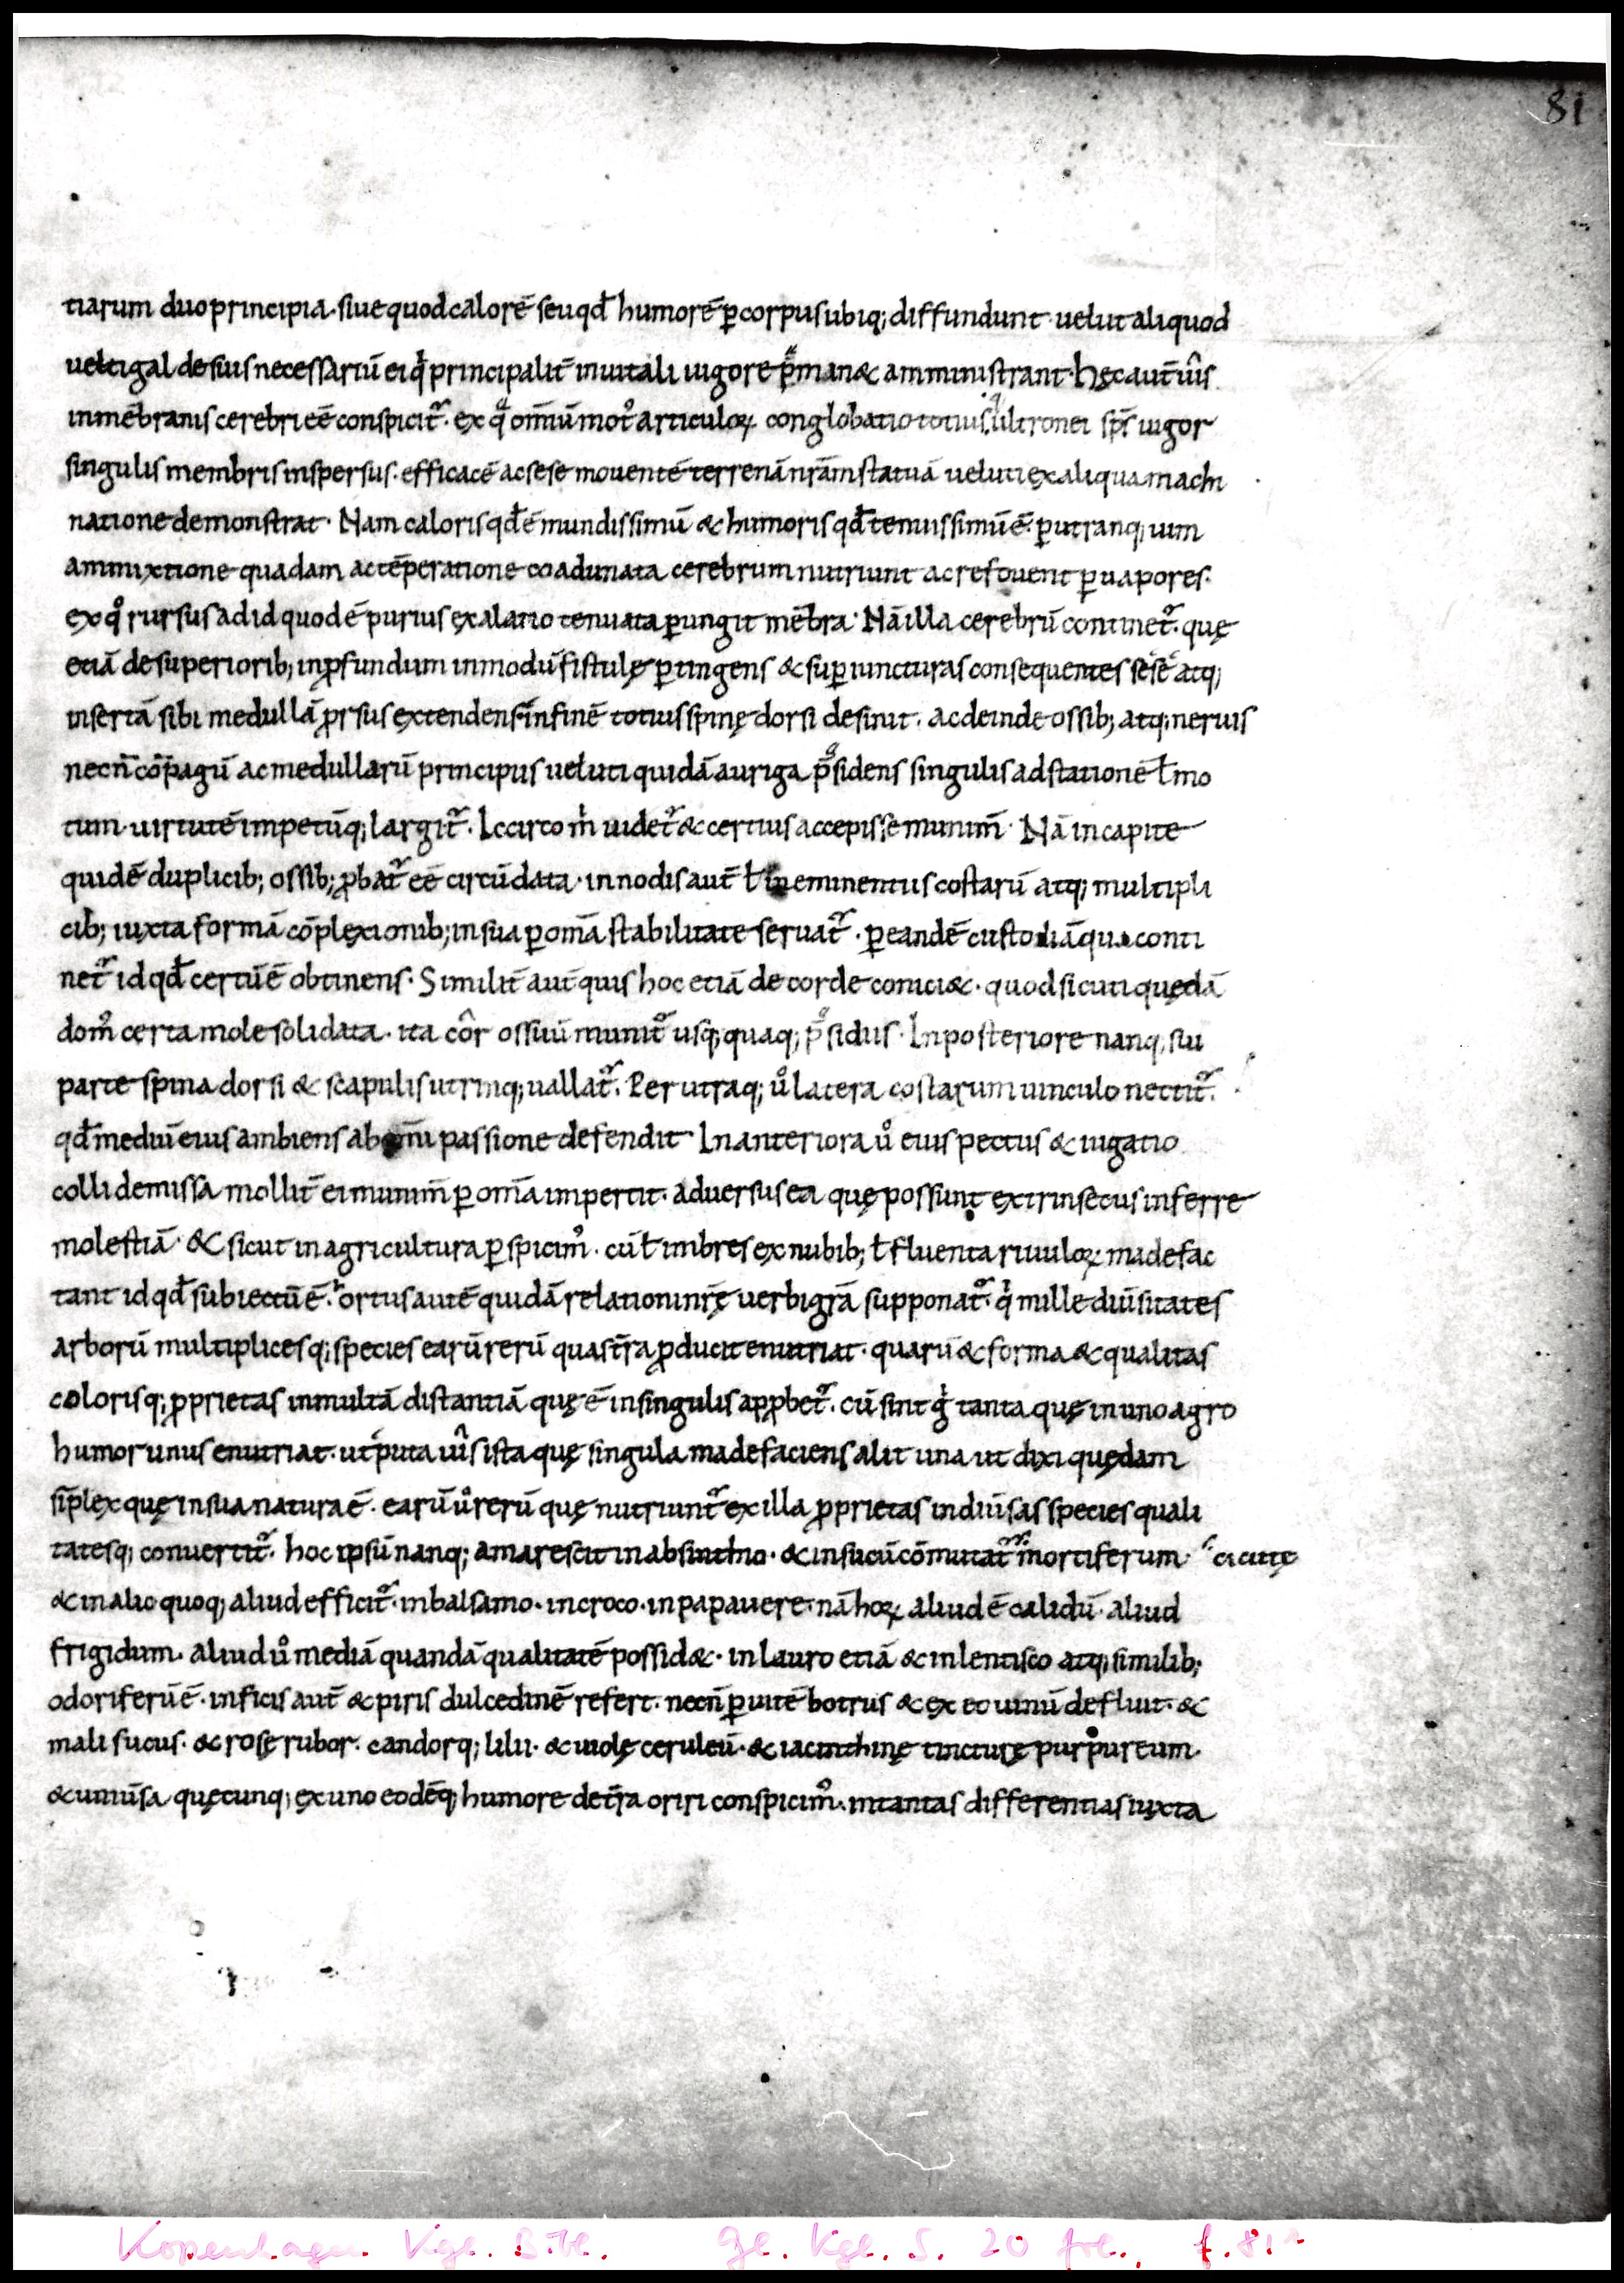 81
tiarum duo principia· siue quod calorē seu qđ humorē ꝑ corpus ubiq; diffundunt· uelut aliquod
uectigal de suis necessariū ei q̇ principalit̄ in uitali uigore p̄manet amministrant· hęc aut̄ uîs
in mēbranis cerebri eē conspicit᷑· ex qͣ om̄iū motꝰ articuloꝝ conglobatio totius· ultronei sp̄s uigor
singulis membris inspersus· efficacē ac sese mouentē terrenā nr̄am statuā ueluti ex aliqua machi
natione demonstrat· Nam caloris qđ ē mundissimū & humoris qđ tenuissimū ē· ꝑ utranq; uim
ammixtione quadam ac tēperatione coadunata cerebrum nutriunt ac refouent ꝑ uapores·
ex qͦ rursus ad id quod ē purius exalatio tenuata ꝑungit mēbra· Nā illa cerebrū continet᷑· quę
etiā de superiorib; in ꝓfundum in modū fistulę ꝑtingens & suꝑ iuncturas consequentes sese atq;
insertā sibi medullā ꝓrsus extendens· in finē totius spinę dorsi desinit· ac deinde ossib; atq; neruis
necn̄ cōpagū ac medullarū principiis ueluti quidā auriga p̄sidens singulis ad statione ł mo
tum· uirtutē impetūq; largit᷑· Iccirco ṁ uidet᷑ & certius accepisse munim̄· Nā in capite
quidē duplicib; ossib; ꝓbat᷑ eē circūdata· in nodis aut̄ ł in eminentiis costarū atq; multipli
cib; iuxta formā cōplexionib; in sua ꝑ om̄a stabilitate seruat᷑· ꝑ eandē custodiā qua conti
net᷑ id qđ certū ē obtinens· Similit̄ aut̄ quis hoc etiā de corde coniciet· quod sicuti quędā
domꝰ certa mole solidata· ita côr ossuū munit᷑ usq; quaq; p̄sidiis· In posteriore nanq; sui
parte spina dorsi & scapulis utrinq; uallat᷑· Per utraq; ů latera costarum uinculo nectit᷑·
qđ mediū eius ambiens ab om̄i passione defendit· In anteriora ů eius pectus & iugatio
colli demissa mollit̄ ei munim̄ ꝑ om̄a impertit· aduersus ea quę possunt extrinsecus inferre
molestiā· & sicut in agricultura ꝑspicimꝰ· cū ł imbres ex nubib; ł fluenta riuuloꝝ madefac
tant id qđ subiectū ē· ortus autē quidā relationi nr̄ę uerbi grā supponat᷑· q̇ mille diūsitates
arborū multiplicesq; species earū rerū quas tr̄a ꝓducit enutriat· quarū & forma & qualitas
colorisq; ꝓprietas in multā distantiā quę ē in singulis apꝓbet᷑· cū sint g̊ tanta quę in uno agro
humor unus enutriat· ut puta uîs ista quę singula madefaciens alit una ut dixi quędam
sīplex quę in sua natura ē· earū ů rerū quę nutriunt᷑ ex illa ꝓprietas in diūsas species quali
tatesq; conuertit᷑· hoc ipsū nanq; amarescit in absinthio· & in sucū cōmutat᷑ mortiferum· cicutę
& in alio quoq; aliud efficit᷑· in balsamo· in croco· in papauere· nā hoꝝ aliud ē calidū· aliud
frigidum· aliud ů mediā quandā qualitatē possidet· in lauro etiā & in lentisco atq; similib;
odoriferū ē· in ficis aut̄ & piris dulcedinē refert· necn̄ ꝑ uitē botrus & ex eo uinū defluit· &
mali sucus· & rosę rubor· candorq; lilii· & uiolę ceruleū· & iacinthinę tincturę purpureum·
& uniūsa quęcunq; ex uno eodēq; humore de tr̄a oriri conspicimꝰ· in tantas differentias iuxta
Kopenhagen Kgl. Bibl. Gl. Kgl. S. 20 fol., f. 81r